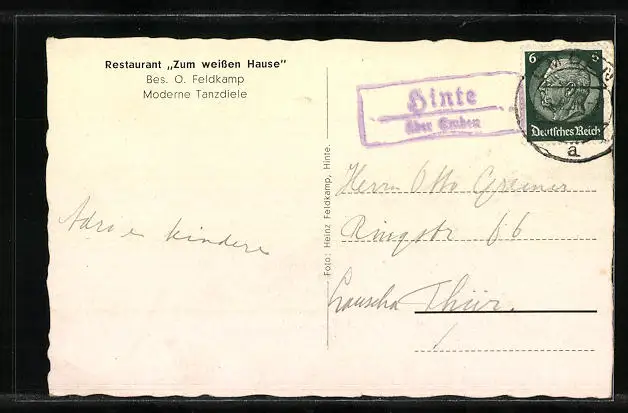 Restaurant „Zum weißen Hause"
Bes. O. Feldkamp
Moderne Tanzdiele
Hinte
über Emden
6
Deutsches Reich
a
Foto: Heinz Feldkamp, Hinte.
Herrn Otto Greiner
Ringstr 66
Lauscha Thür.